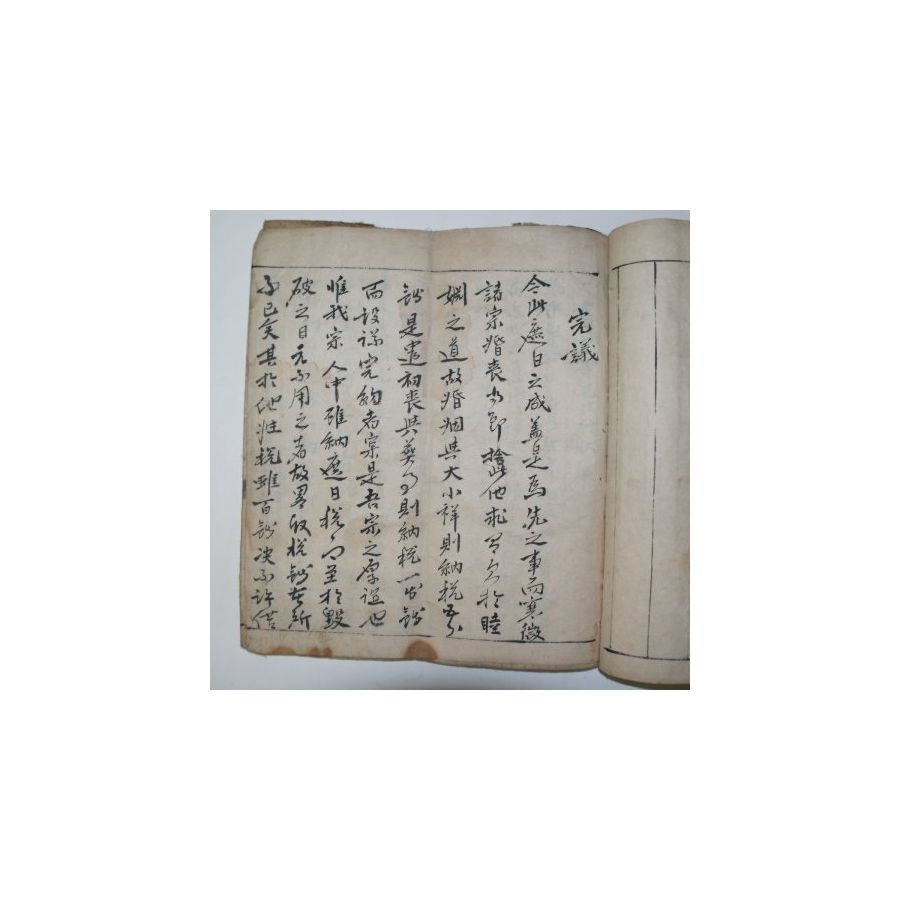 完議
今此遮日之成盖是爲先之事而寒微
諸宗婚喪當節捨此他求有欠於睦
婣之道故婚姻與大小祥則納稅五分
錢是遣初喪與葬事則納稅一戔錢
而設議完約者寔是吾宗之厚誼也
惟我宗人中雖納遮日稅而至於毁
破之日元不用之者故畧收稅錢在所
不已矣其於他姓稅雖百錢决不許借